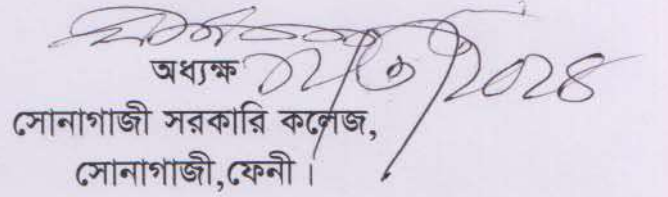 অধ্যক্ষ
সোনাগাজী সরকারি কলেজ,
সোনাগাজী,ফেনী।